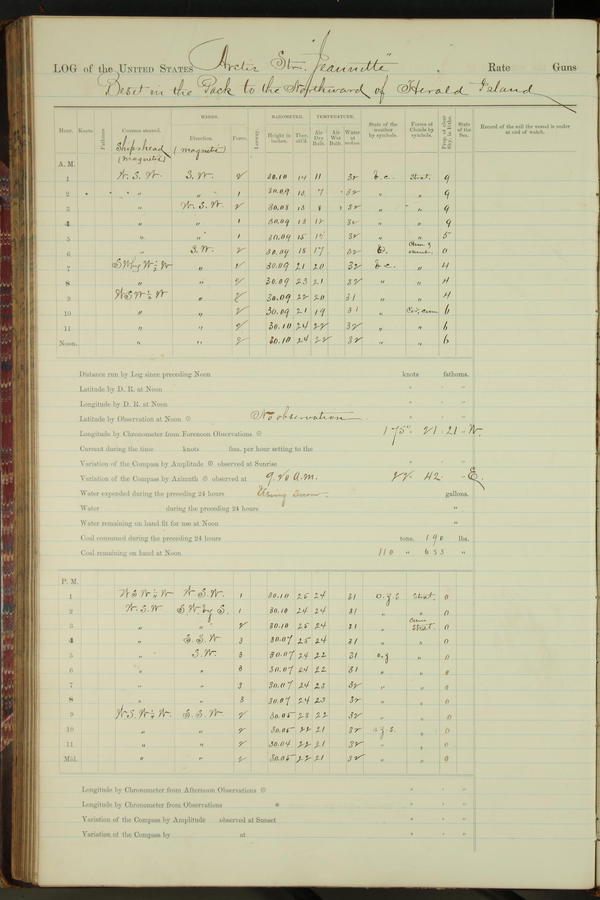 LOG of the UNITED STATES Arctic Str. "Jeannette". Rate Guns
Beset in the Pack to the Northward of Herald Island
WINDS. BAROMETER. TEMPERATURE.
Hour. Knots. Fathoms. Courses steered. Direction. Force. Leeway. Height in inches. Ther. att'd. Air Dry Bulb. Air Wet Bulb. Water at surface. State of the weather by symbols. Forms of Clouds by symbols. Prop. of clear sky, in tenths. State of the Sea. Record of the sail the vessel is under at end of watch.
Ship's head (magnetic) (magnetic)
A. M.
1 W. S. W. S. W. 2 30.10 14 11 32 b.c. Strat. 9
2 " " 1 30.09 13 7 32 " " 9
3 " W. S. W. 2 30.08 13 8 32 " " 9
4 " " 1 30.09 13 12 32 " " 9
5 " " 1 30.09 15 32 " " 5
6 " S. W. 2 30.09 18 17 32 Cum & 0
7 SW by W ½ W " 2 30.09 21 20 32 b.c. " 4
8 " " 2 30.09 23 21 32 " " 4
9 WSW ½ W " 2 30.09 22 20 31 " " 4
10 " " 2 30.09 21 19 31 " Cir. cum 6
11 " " 2 30.10 24 22 32 " " 6
Noon. " " 2 30.10 24 22 32 " " 6
Distance run by Log since preceding Noon knots fathoms.
Latitude by D. R. at Noon
Longitude by D. R. at Noon
Latitude by Observation at Noon No observation
Longitude by Chronometer from Forenoon Observations 175° 21 21 W.
Current during the time knots fms. per hour setting to the
Variation of the Compass by Amplitude observed at Sunrise
Variation of the Compass by Azimuth observed at 9.20 A.M. 22 42 E.
Water expended during the preceding 24 hours Using snow. gallons.
Water during the preceding 24 hours "
Water remaining on hand fit for use at Noon "
Coal consumed during the preceding 24 hours tons. 190 lbs.
Coal remaining on hand at Noon 110 " 633 "
P. M.
1 WSW ½ W W. S. W. 1 30.10 25 24 31 Strat. 0
2 W. S. W S. W by S. 1 30.10 24 24 31 " " 0
3 " " 2 30.10 25 24 31 " Cum Strat. 0
4 " S. S. W 3 30.07 25 24 31 " " 0
5 " S. W. 3 30.07 24 22 31 o.z " 0
6 " " 3 30.07 24 22 31 " " 0
7 " " 3 30.07 24 23 32 " " 0
8 " " 3 30.07 24 23 32 " " 0
9 W. S. W ½ W. S. S. W 2 30.05 23 22 32 " " 0
10 " " 2 30.05 22 21 32 o.z.s. " 0
11 " " 2 30.04 22 21 32 " " 0
Mid. " " 2 30.05 22 21 32 " " 0
Longitude by Chronometer from Afternoon Observations
Longitude by Chronometer from Observations
Variation of the Compass by Amplitude observed at Sunset
Variation of the Compass by at